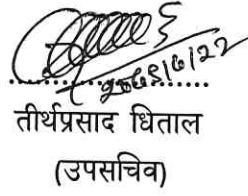 २०७९/७/२२
तीर्थप्रसाद धिताल
(उपसचिव)